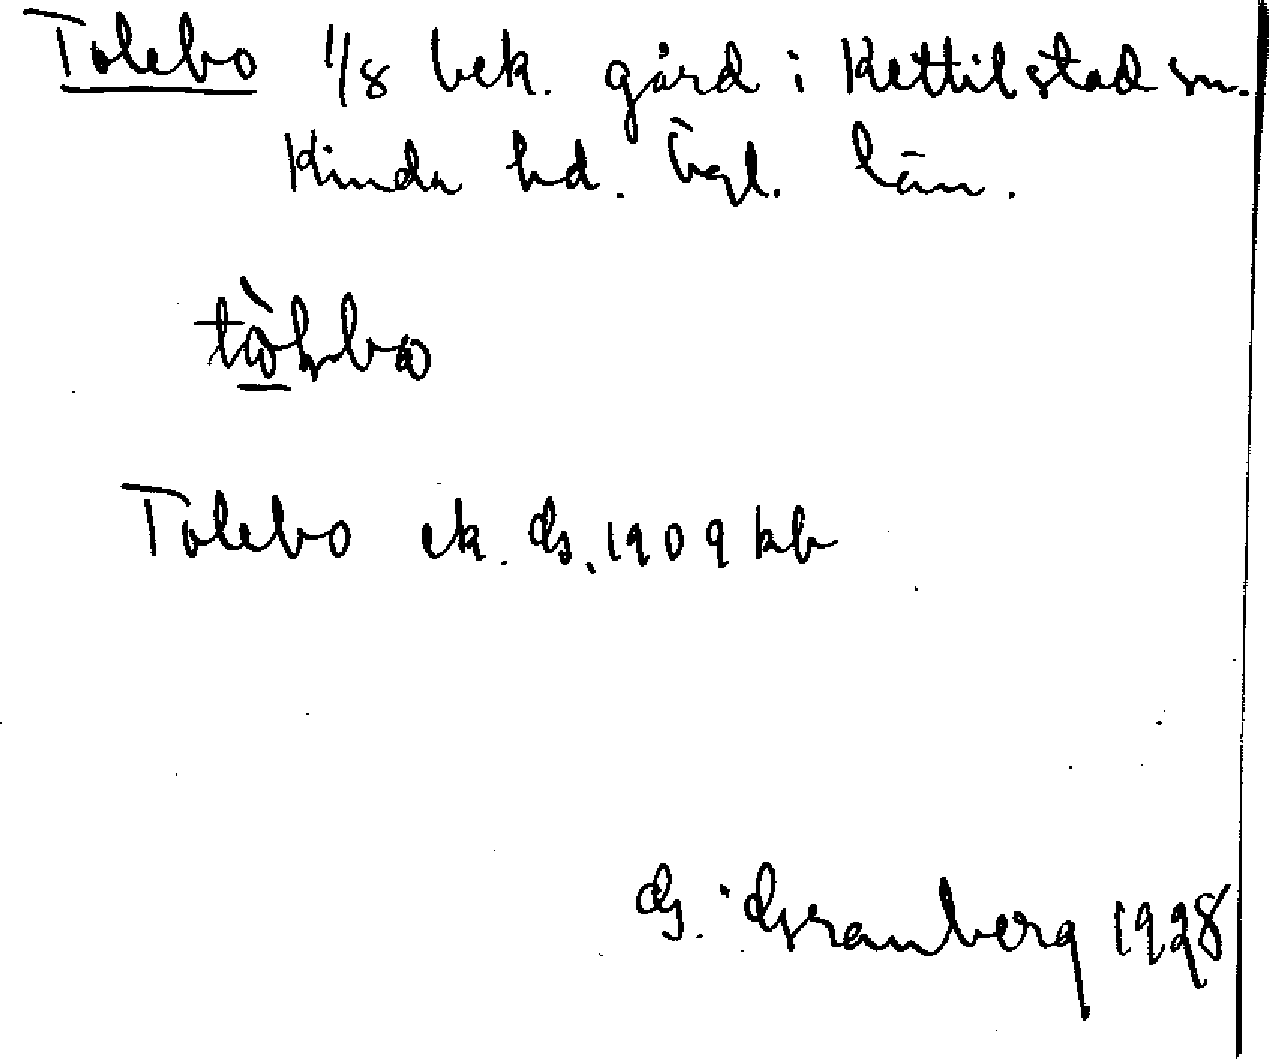 Tolebo 1/8 bek. gård i Kettilstad sn.
Kinda hd. Ögl. län.
Tolebo ek. G. 1909 kb
G. Granberg 1928